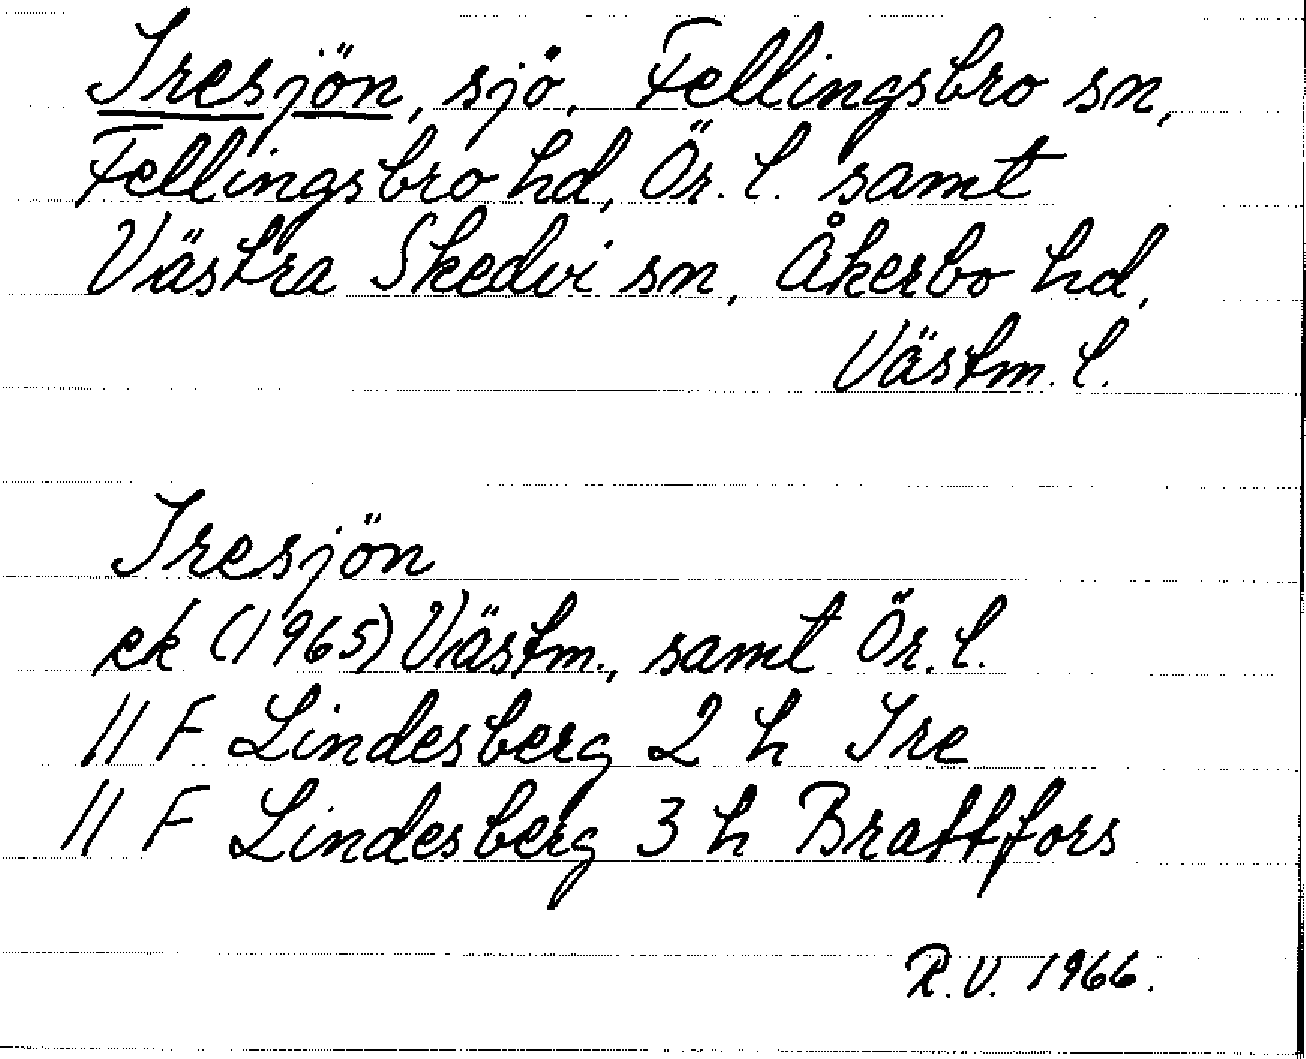 Tresjön, sjö, Fellingsbro sn,
Fellingsbro hd, Ör. l. samt
Västra Skedvi sn, Åkerbo hd,
Västm. l.
Tresjön
ek (1965) Västm., samt Ör. l.
11 F Lindesberg 2 h Tre
11 F Lindesberg 3 h Brattfors
R.V. 1966.